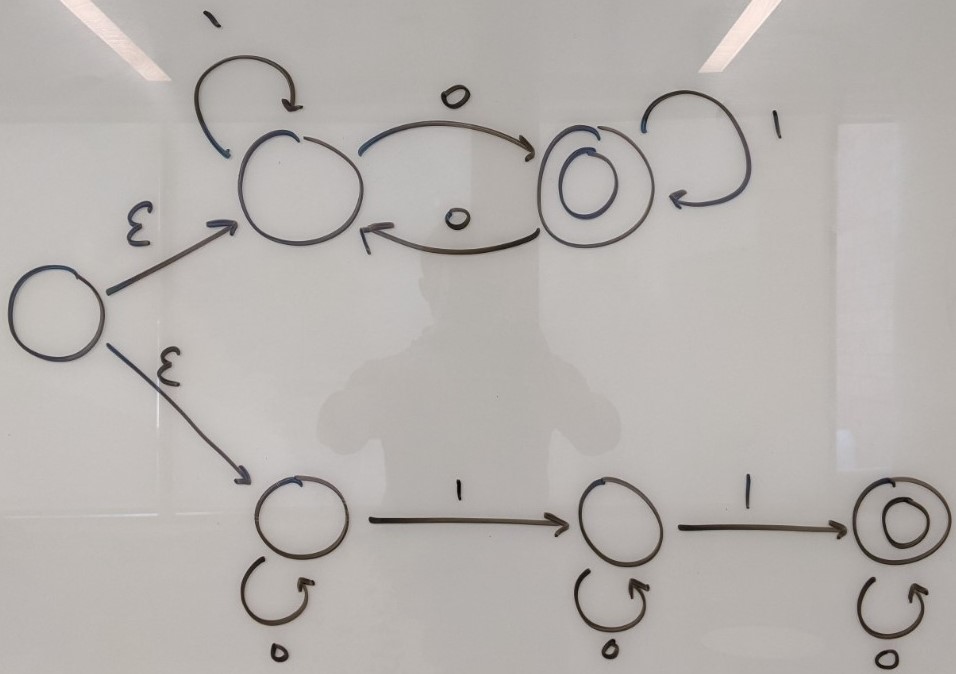 1
0
1
0
ε
ε
1
1
0
0
0